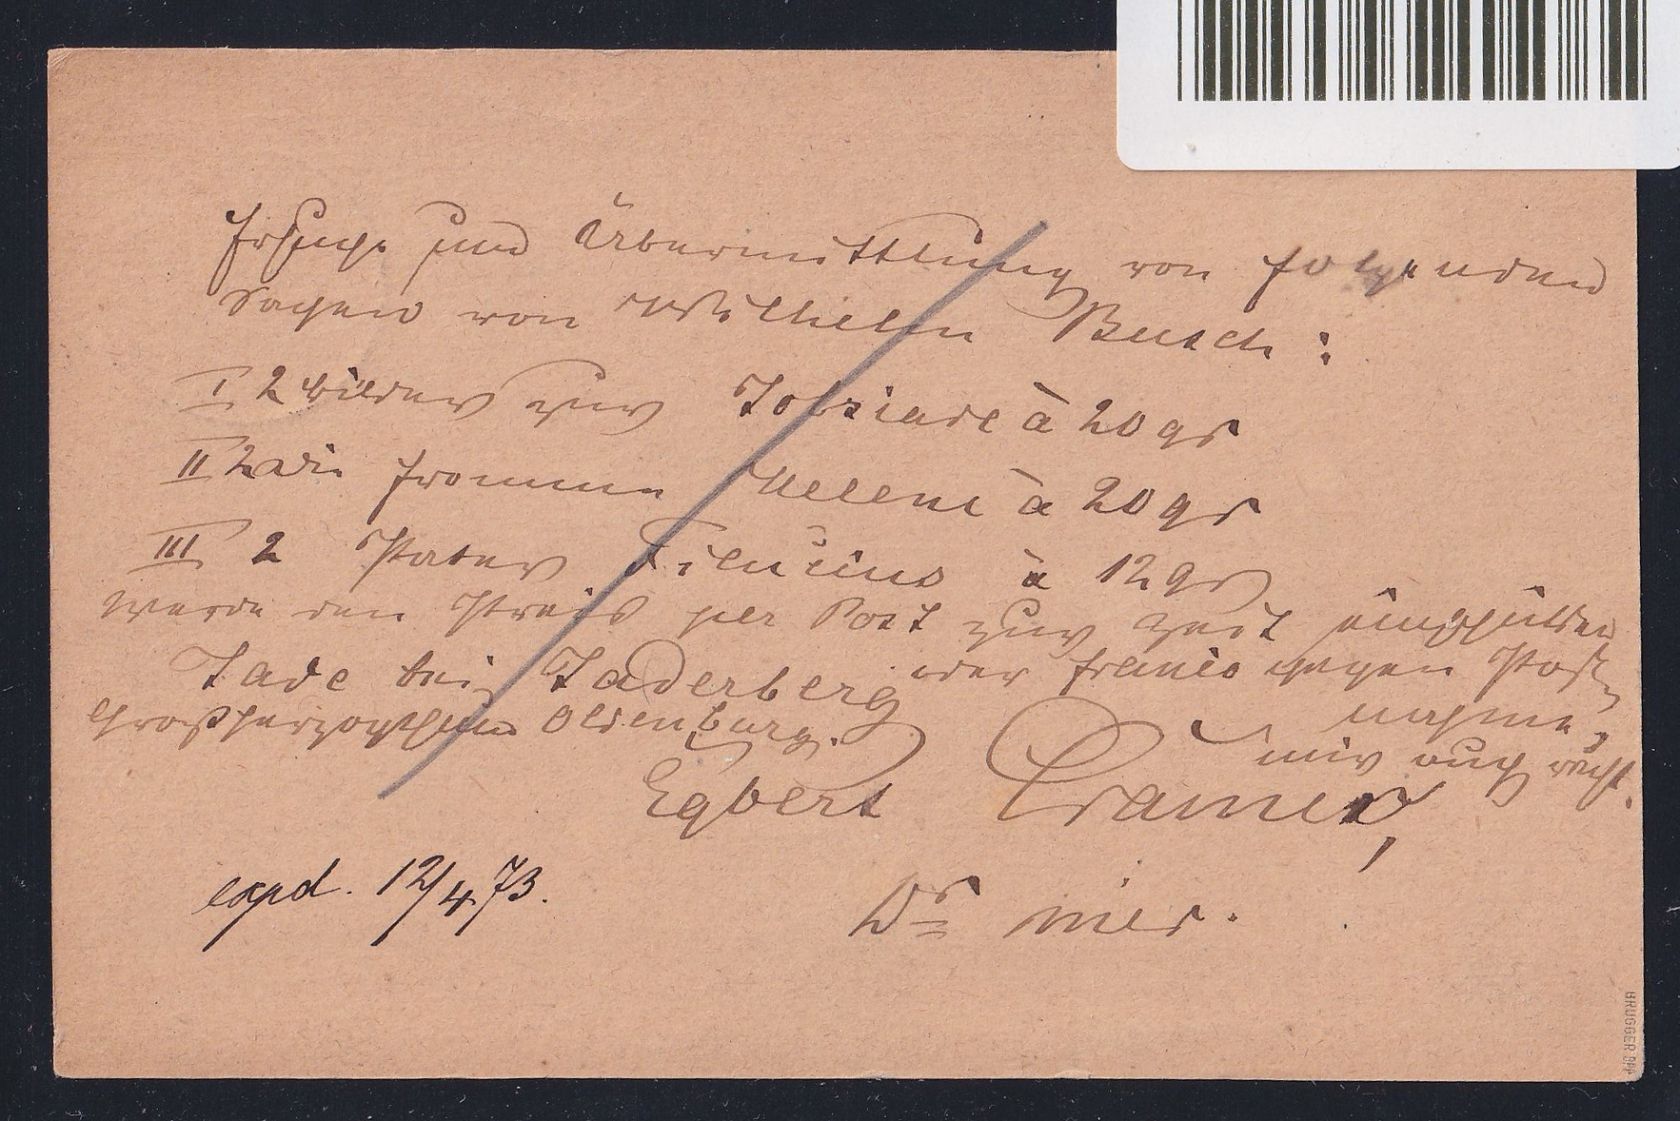 Ersuche um Übermittlung von folgenden
Sachen von Wilhelm Busch:
I 2 Bilder zur Jobsiade à 20 gr
II 2 Die fromme Helene à 20 gr
III 2 Pater Filucius à 12 gr
werde den Preis per Post zur Zeit
oder franco gegen Post-
nahme,
mir auch recht.
Jade bei Jaderberg
Großherzogthum Oldenburg.
Egbert Cramer,
Dr
expd. 12/4 73.
BRUGGER BPP